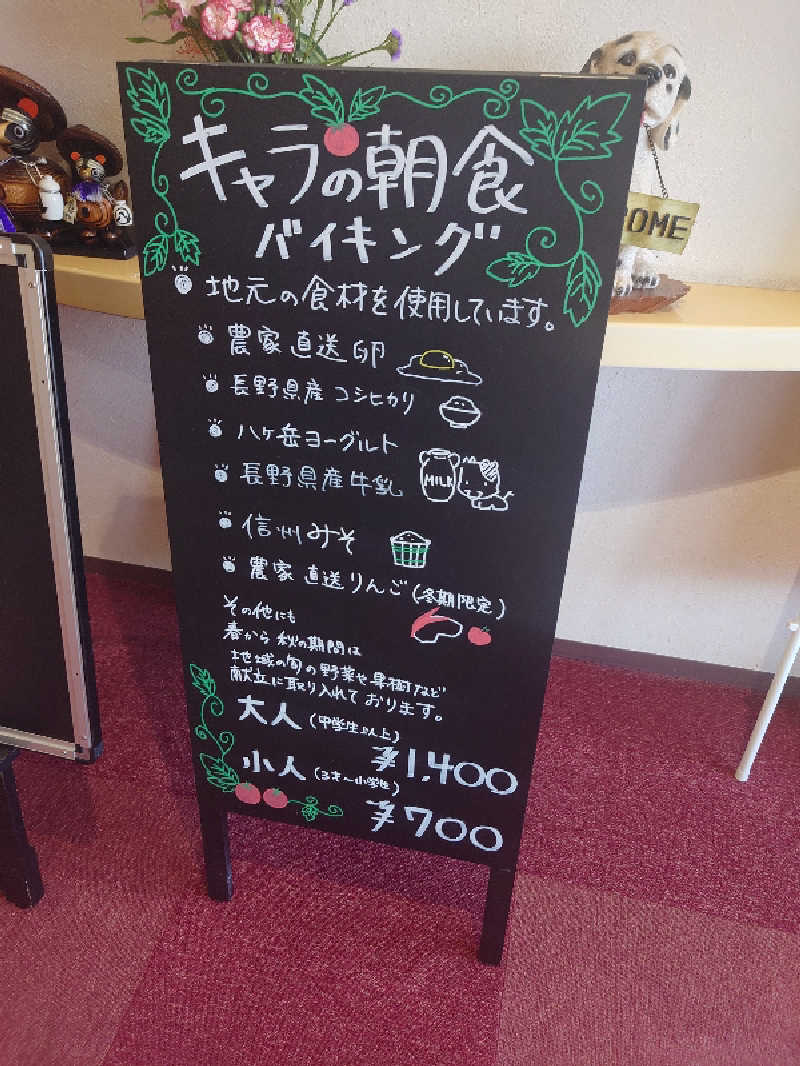 キャラの朝食
バイキング
地元の食材を使用しています。
農家直送卵
長野県産コシヒカリ
八ヶ岳ヨーグルト
長野県産牛乳
MILK
信州みそ
農家直送りんご(冬期限定)
その他にも
春から秋の期間は
地域の旬の野菜や果樹など
献立に取り入れております。
大人(中学生以上)
¥1,400
小人(3才〜小学生)
¥700
OME